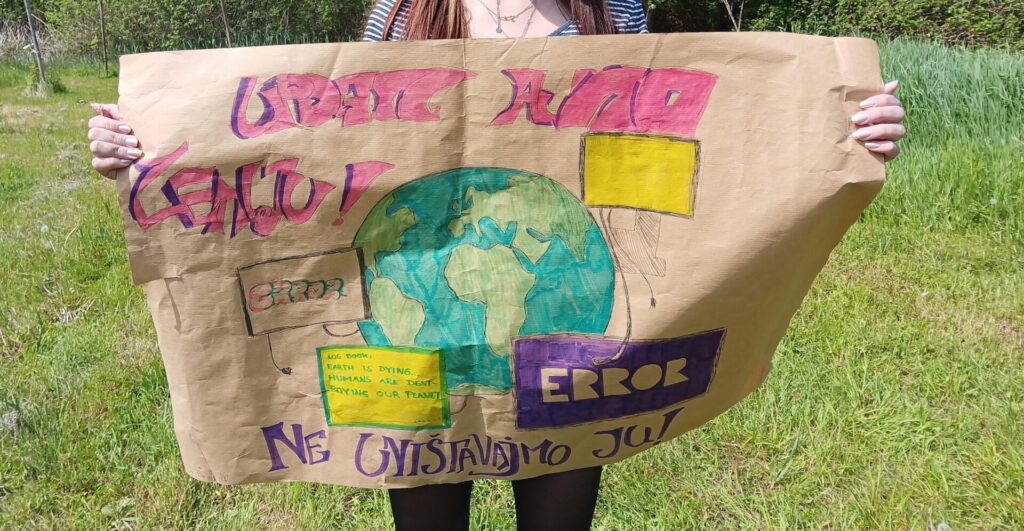 UPDATE AJMO
ZEMLJU!
ERROR
LOG BOOK:
EARTH IS DYING...
HUMANS ARE DEST-
ROYING OUR PLANET
ERROR
NE UNIŠTAVAJMO JU!